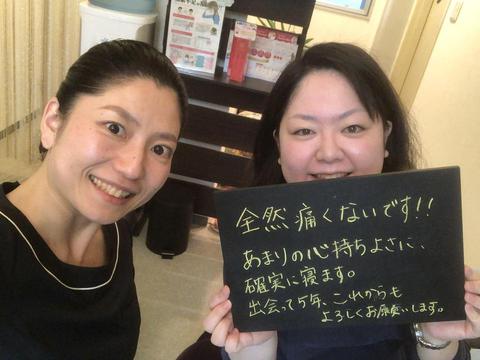 全然痛くないです!!
あまりの心持ちよさに、
確実に寝ます。
出会って5年、これからも
よろしくお願いします。